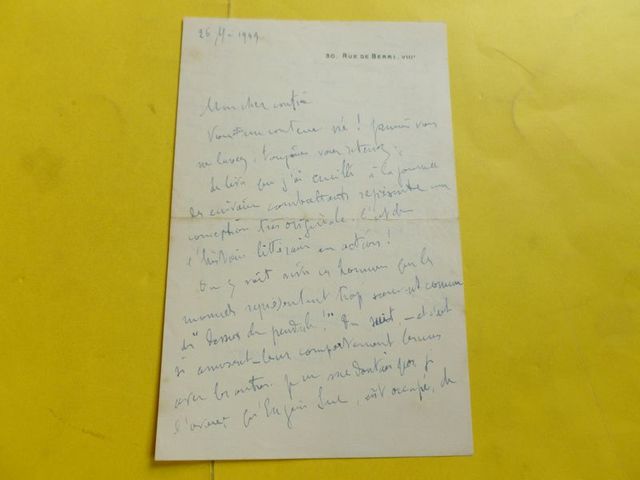 1949
30, RUE DE BERRI, VIIIᵉ
Mon cher confrère
Vous un conteur né ! Jamais vous
ne lassez, toujours vous retenez.
Le livre que j'ai cueilli à la journée
des écrivains combattants représente une
conception très originale. C'est de
l'histoire littéraire en action !
On y voit vivre ces hommes que les
manuels représentent trop souvent comme
des "dessus de pendule !" On suit, — et c'est
si amusant — leur comportement les uns
avec les autres. Je ne me doutais pas, je
l'avoue, qu'Eugène Sue, eût occupé, de